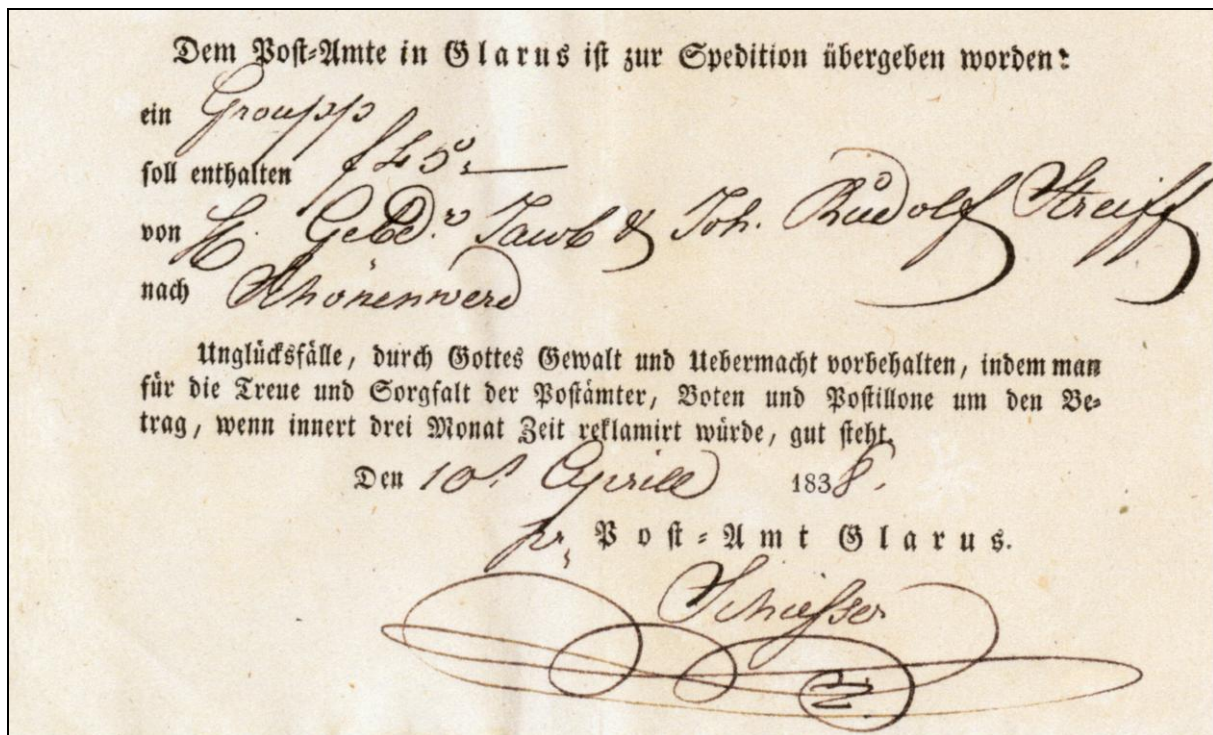 Dem Post-Amte in Glarus ist zur Spedition übergeben worden:
ein Groupp
soll enthalten f 45.—
von H. Gebd.r Jacob & Joh. Rudolf Streiff
nach Schönenwerd
Unglücksfälle, durch Gottes Gewalt und Uebermacht vorbehalten, indem man
für die Treue und Sorgfalt der Postämter, Boten und Postillone um den Be-
trag, wenn innert drei Monat Zeit reklamirt würde, gut steht.
Den 10t Aprill 1838.
pr. Post-Amt Glarus.
Schiesser